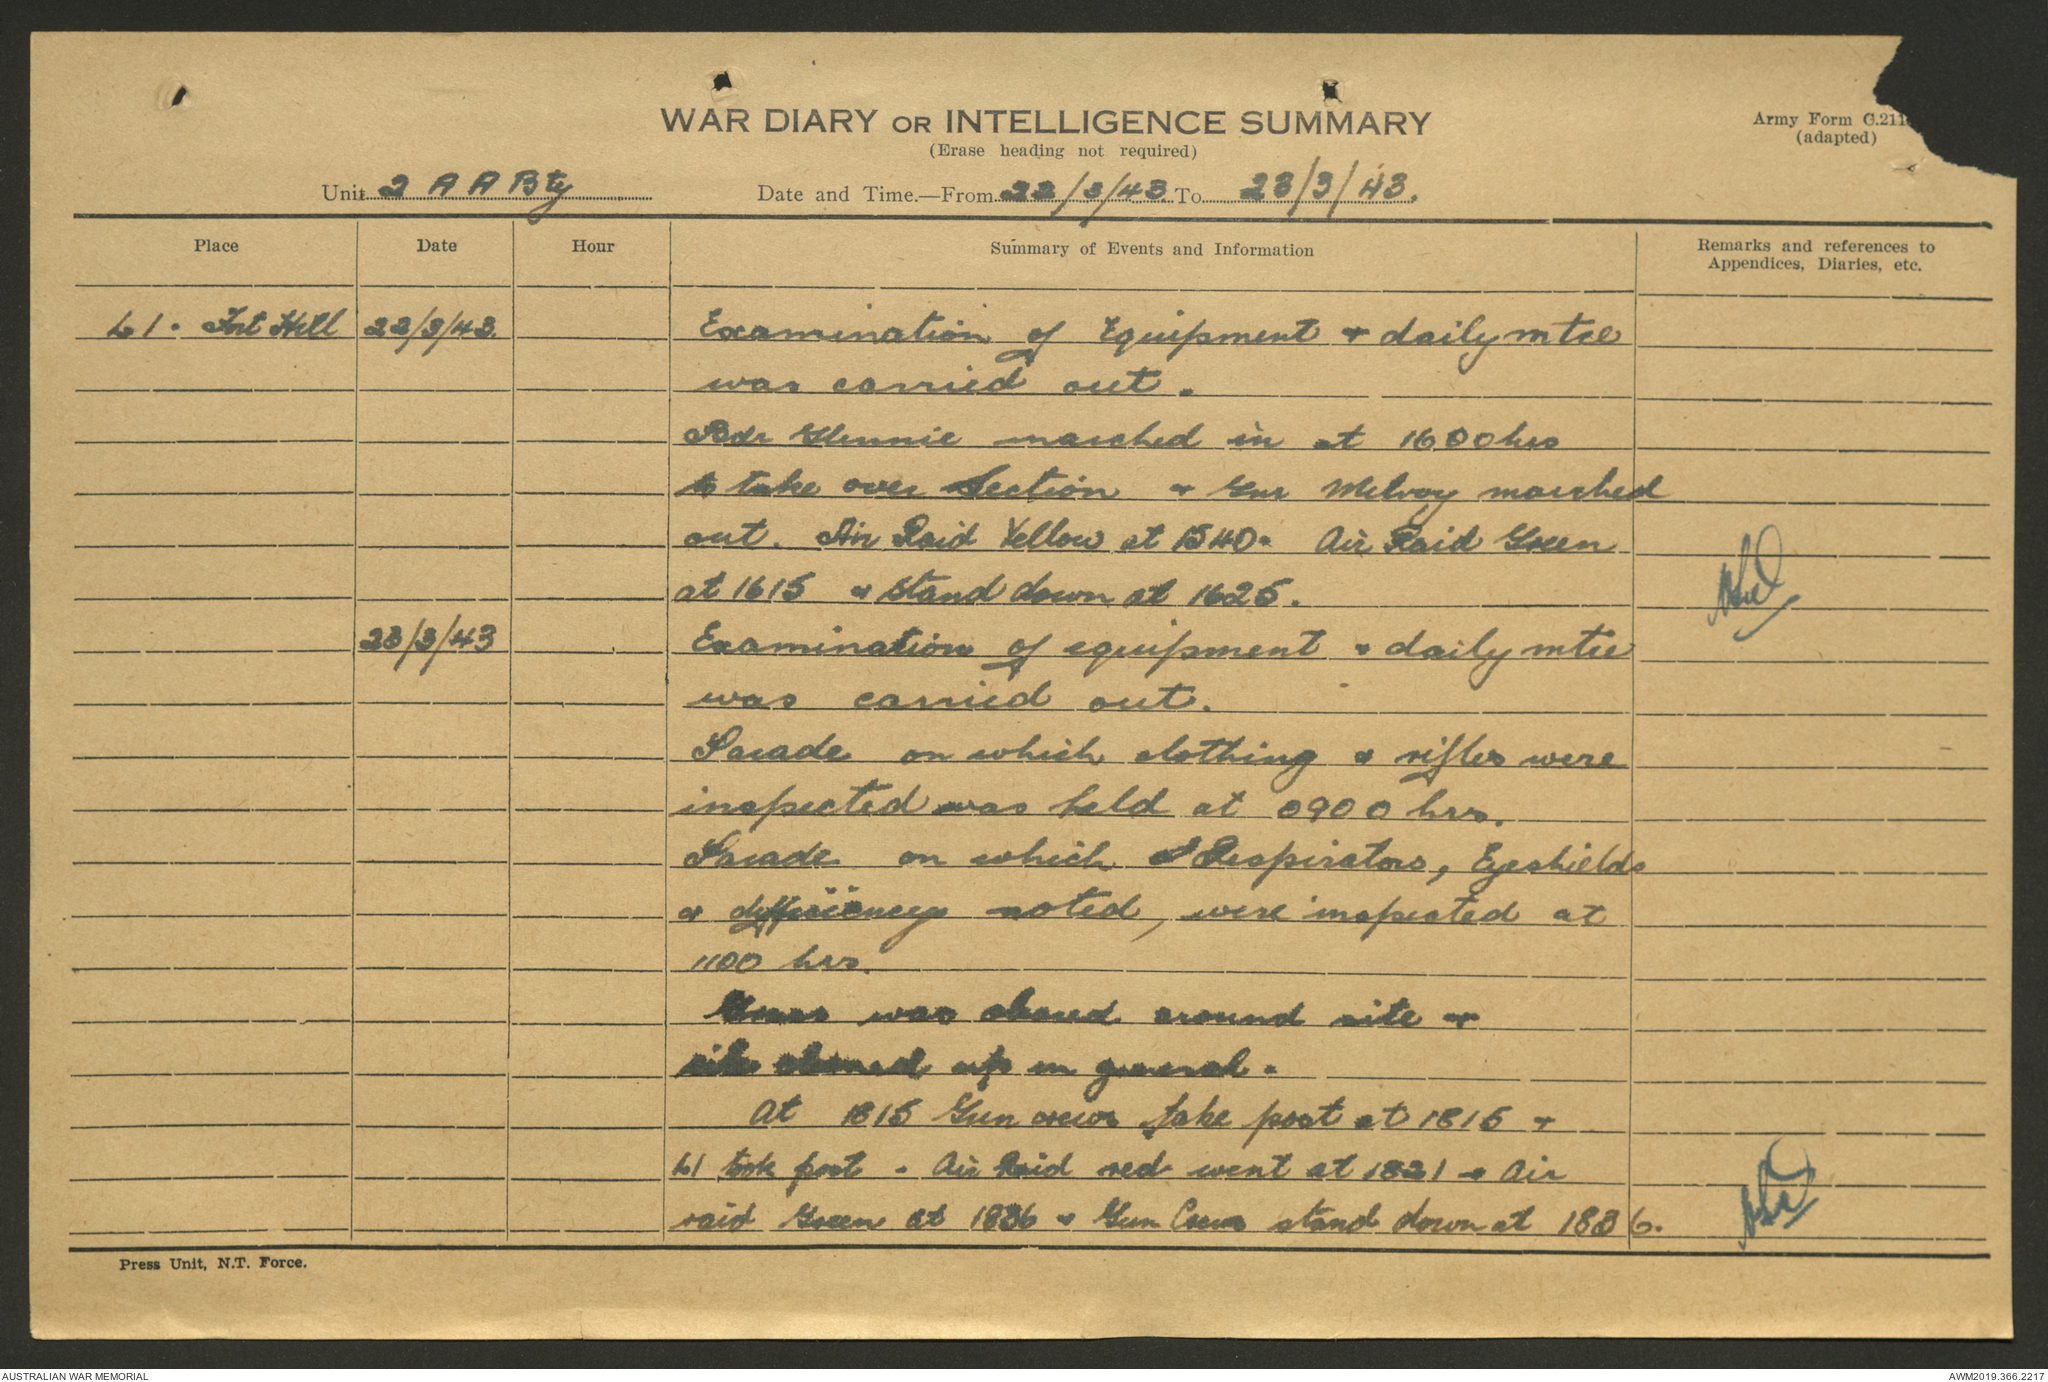 WAR DIARY OR INTELLIGENCE SUMMARY
(Erase heading not required)
Army Form C.211
(adapted)
Unit 2 A A Bty
Date and Time.—From 22/3/43 To 23/3/43.
Place Date Hour Summary of Events and Information Remarks and references to
Appendices, Diaries, etc.
L1. Fort Hill 22/3/43. Examination of Equipment & daily mtce
was carried out.
Bdr Glennie marched in at 1600 hrs
to take over Section & Gnr marched
out. Air Raid Yellow at 1540. Air Raid Green
at 1615 & stand down at 1625.
23/3/43 Examination of equipment & daily mtce
was carried out.
Parade on which clothing & rifles were
inspected was held at 0900 hrs.
Parade on which Respirators, Eyeshields
& noted, were inspected at
1100 hrs.
Grass was cleared around site &
site cleaned up in general.
At 1815 Gun crews take post at 1815 &
L1 took post. Air Raid red went at 1821 & Air
raid Green at 1836 & Gun Crews stand down at 1836.
Press Unit, N.T. Force.
AUSTRALIAN WAR MEMORIAL
AWM2019.366.2217